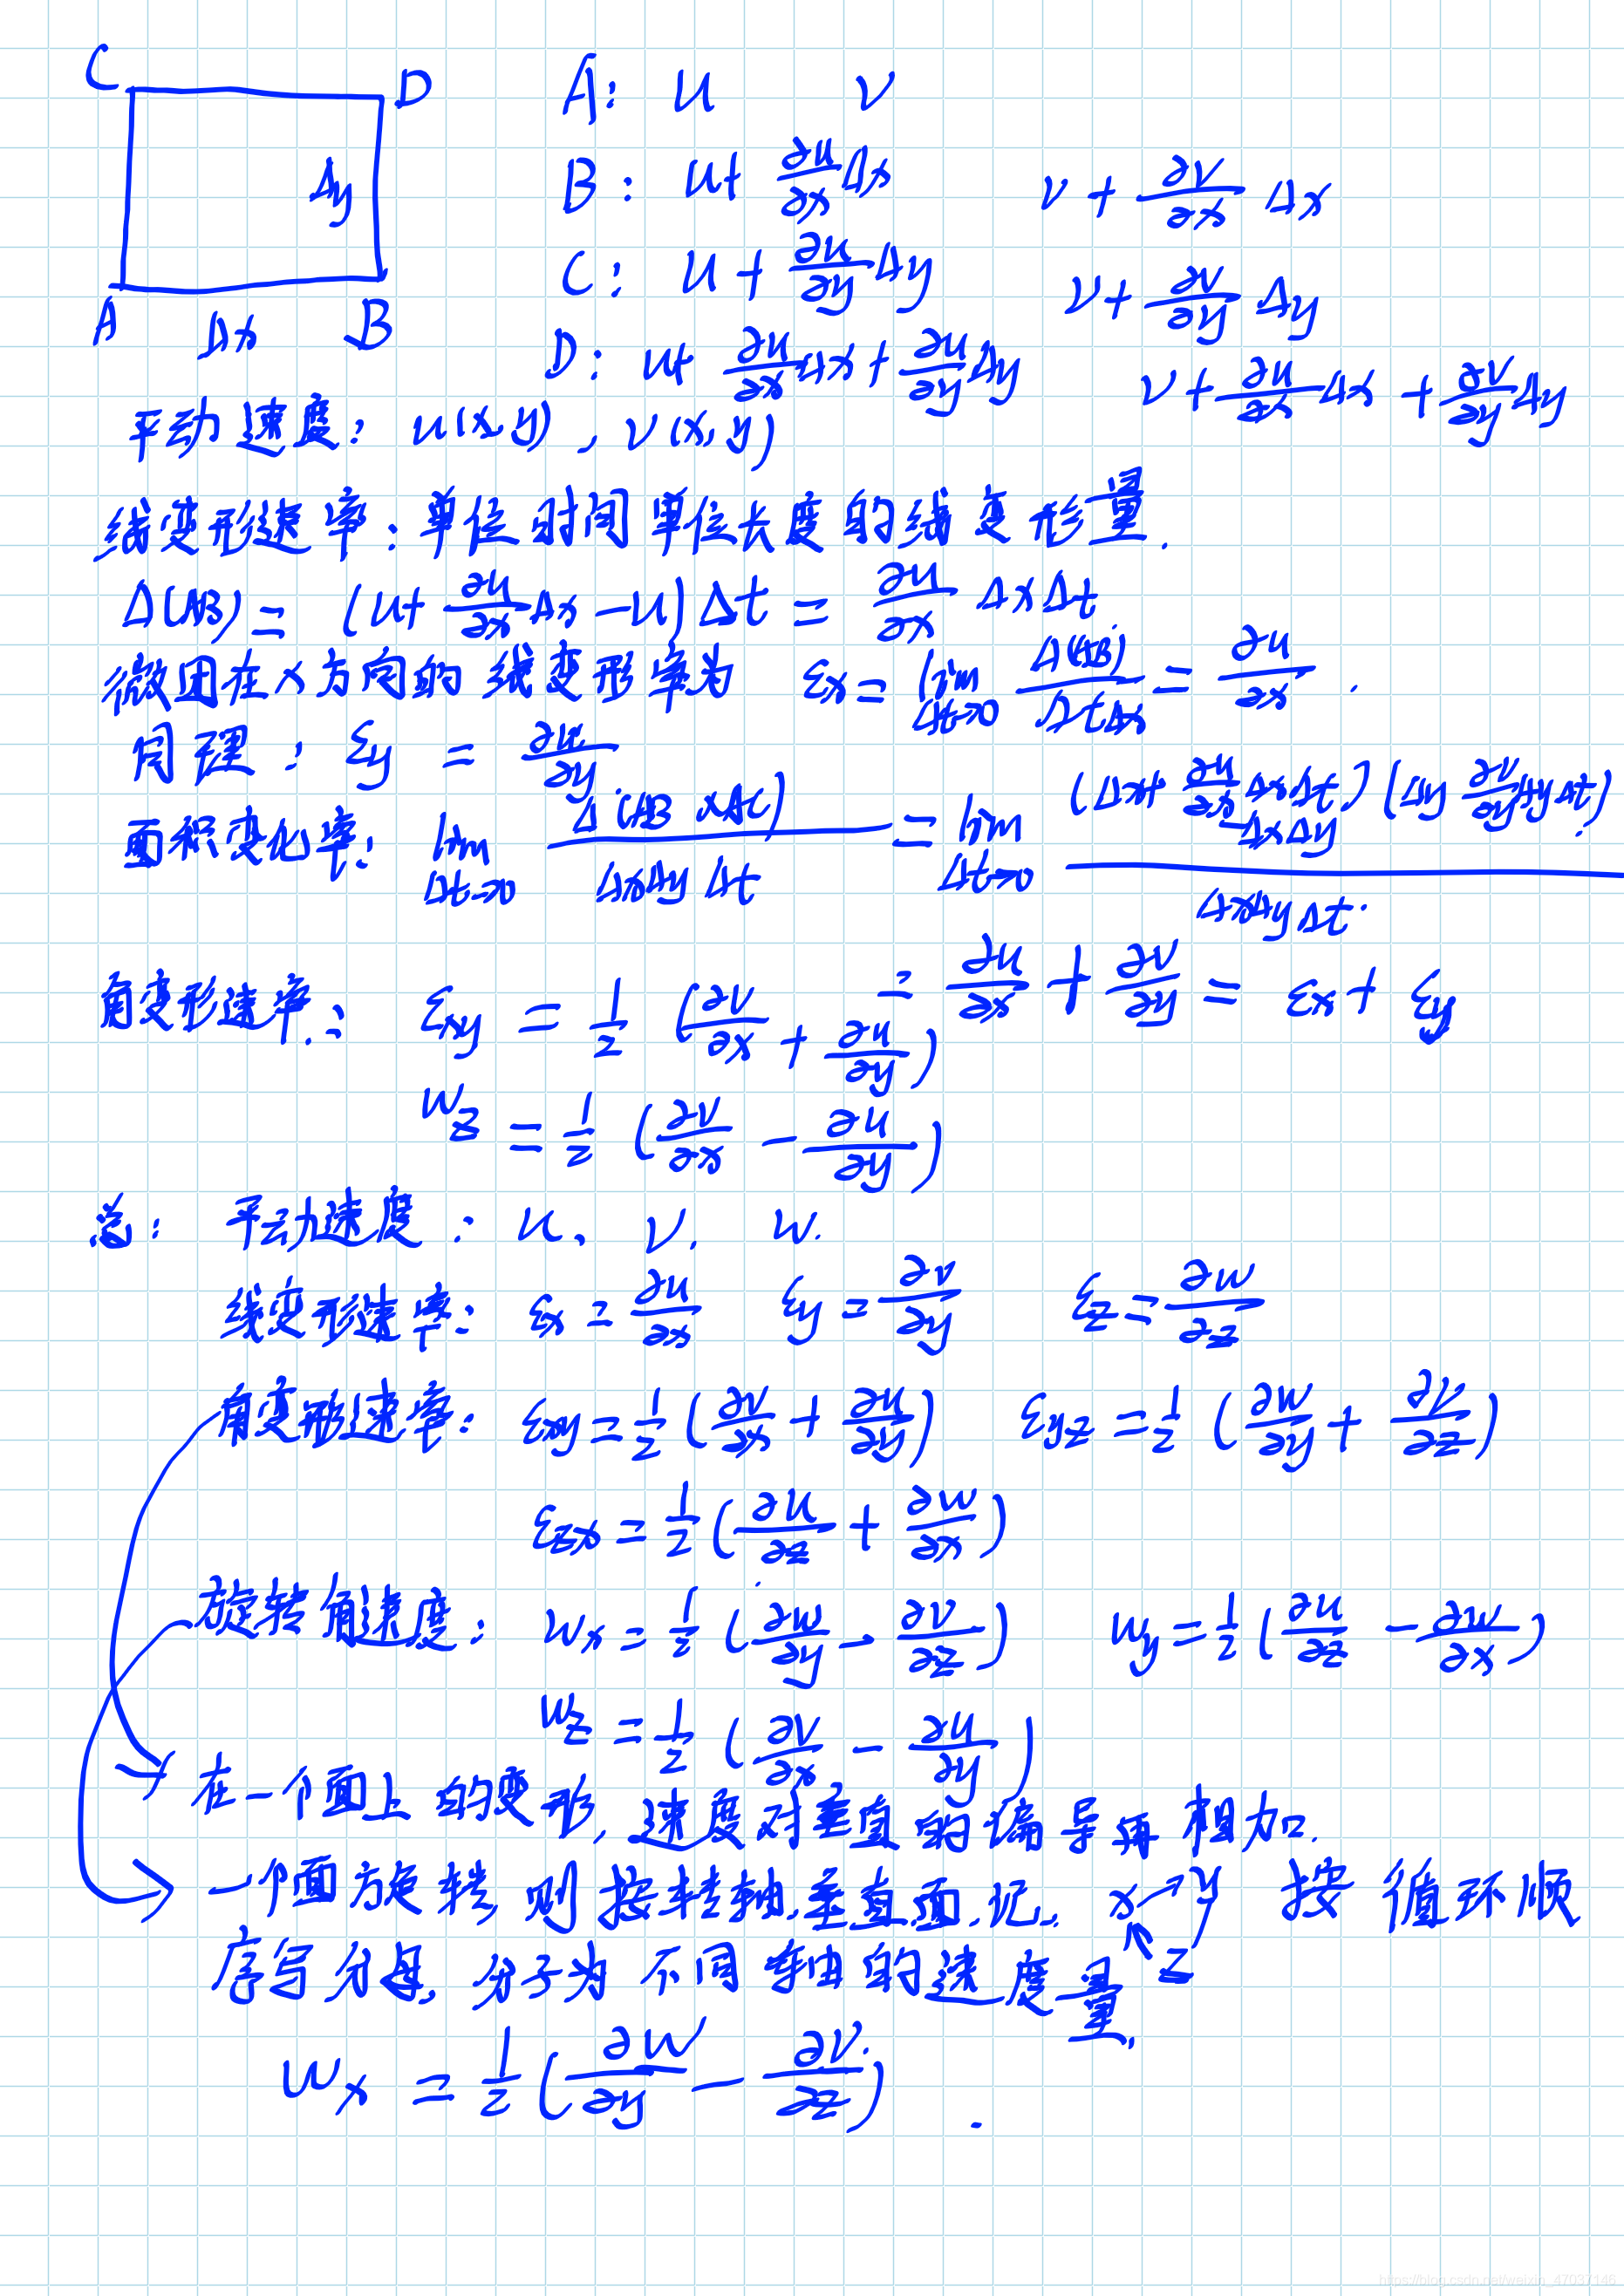 C D
Δy
A Δx B
A: u v
B: u+ ∂u/∂x Δx v + ∂v/∂x Δx
C: u + ∂u/∂y Δy v + ∂v/∂y Δy
D: u+ ∂u/∂x Δx + ∂u/∂y Δy v + ∂u/∂x Δx + ∂v/∂y Δy
平动速度: u(x,y), v(x,y)
线变形速率:单位时间单位长度的线变形量.
Δ(AB) = (u+ ∂u/∂x Δx - u)Δt = ∂u/∂x ΔxΔt
微团在x方向的线变形率为 εx = lim Δt→0 Δ(AB)/ΔtΔx = ∂u/∂x .
同理: εy = ∂u/∂y
面积变化率: lim Δt→0 Δ(AB×AC)/ΔxΔyΔt = lim Δt→0 (Δx+ ∂u/∂x ΔxΔt)(Δy ∂v/∂y ΔyΔt) -ΔxΔy / ΔxΔyΔt.
= ∂u/∂x + ∂v/∂y = εx + εy
角变形速率: εxy = 1/2 (∂v/∂x + ∂u/∂y)
wz = 1/2 (∂v/∂x - ∂u/∂y)
总: 平动速度: u、 v. w.
线变形速率: εx = ∂u/∂x εy = ∂v/∂y εz = ∂w/∂z
角变形速率: εxy = 1/2 (∂v/∂x + ∂u/∂y) εyz = 1/2 (∂w/∂y + ∂v/∂z)
εzx = 1/2 (∂u/∂z + ∂w/∂x)
旋转角速度: wx = 1/2 (∂w/∂y - ∂v/∂z) wy = 1/2 (∂u/∂z - ∂w/∂x)
wz = 1/2 (∂v/∂x - ∂u/∂y)
在一个面上的变形,速度对垂直的偏导再相加.
一个面旋转,则按转轴垂直面记. x→y z 按循环顺
序写分母,分子为不同轴的速度量.
wx = 1/2 (∂w/∂y - ∂v/∂z) .
https://blog.csdn.net/weixin_47037146